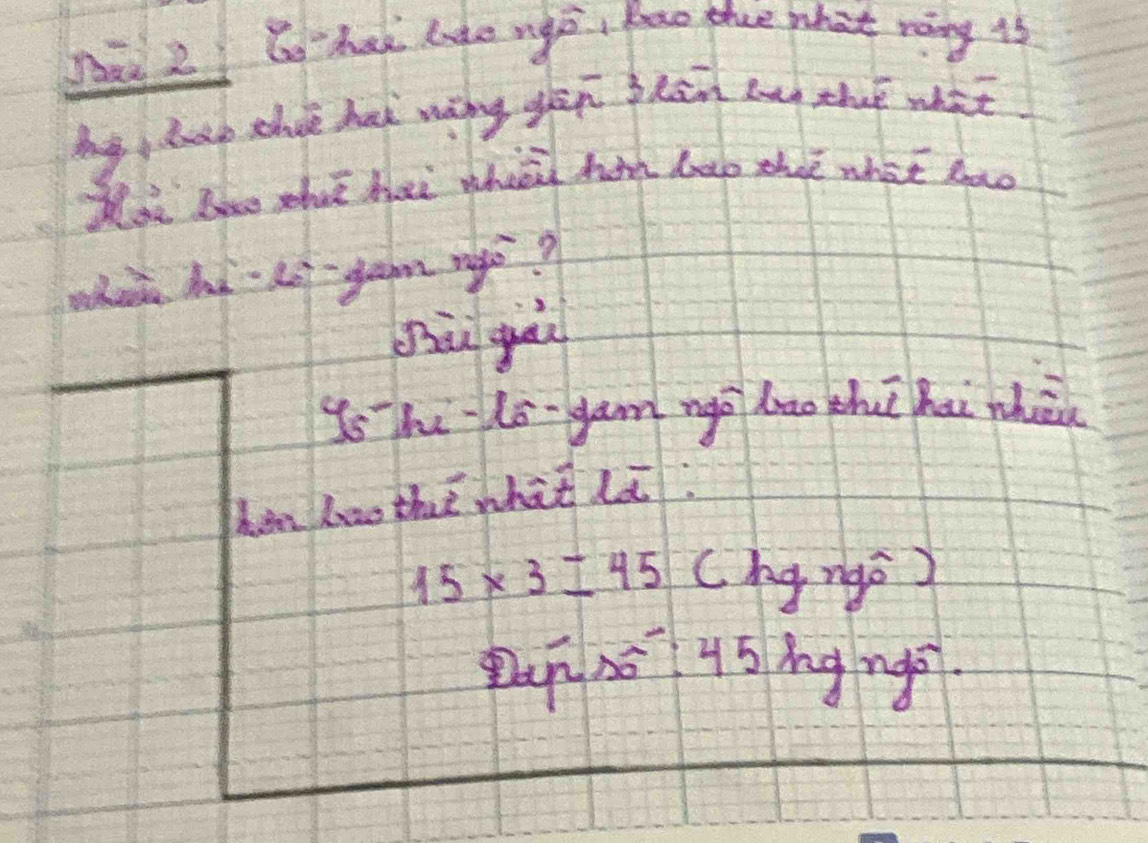 Bài 2: Có hai bao ngô, bao thứ nhất nặng 15
kg, bao thứ hai nặng gấp 3 lần bao thứ nhất.
Hỏi bao thứ hai nhiều hơn bao thứ nhất bao
nhiêu ki-lô-gam ngô?
Bài giải
Số ki-lô-gam ngô bao thứ hai nhiều
hơn bao thứ nhất là:
15 × 3 = 45 (kg ngô)
Đáp số: 45 kg ngô.